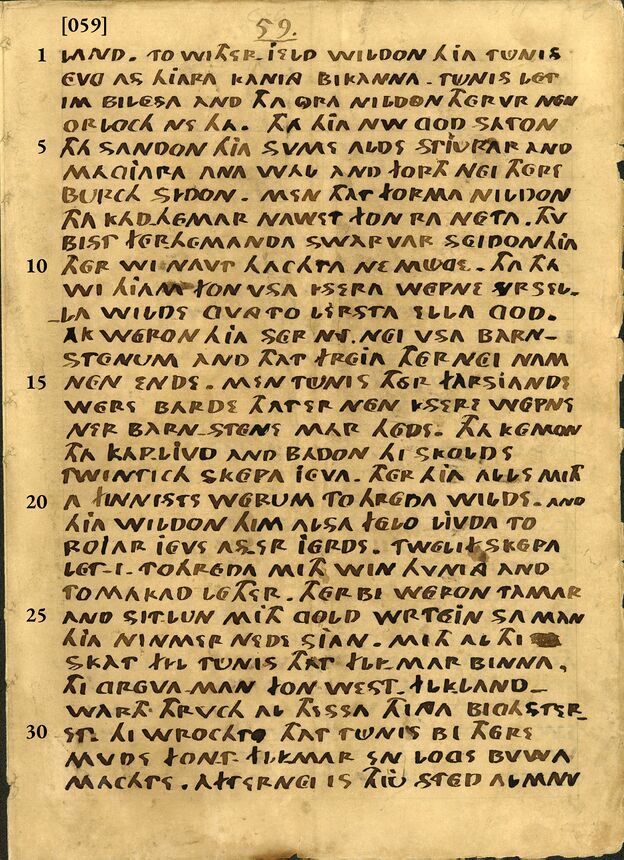 [059]
59.
LAND. TO WITHER JELD WILDON HJA TUNIS
EVG AS HJARA KANIG BIKANNA. TUNIS LET
IM BILESA AND THA ORA NILDON THER VR NEN
ORLOCH NE HA. THA HJA NW GOD SATON
THA SANDON HJA SVME ALDE STJURAR AND
MAGJARA ANA WAL AND FORTH NEI THERE
BURCH SIDON. MEN THAT FORMA NILDON
THA KADHEMAR NAWET FON RA NETA. THV
BIST FERHEMANDA SWARVAR SEIDON HJA
THER WI NAVT HACHTA NE MUGE. THA THA
WI HJAM FON VSA JSERA WEPNE VRSEL-
LA WILDE GVATO LERSTA ELLA GOD.
AK WERON HJA SER NY. NEI VSA BARN-
STENUM AND THAT FREJA THER NEI NAM
NEN ENDE. MEN TUNIS THER FARSIANDE
WERE BARDE THATER NEN JSERE WEPNE
NER BARN-STENE MAR HEDE. THA KEMON
THA KAPLJVD AND BADON HI SKOLDE
TWINTICH SKEPA JEVA. THER HJA ALLE MITH
A FINNISTE WERUM TO HREDA WILDE. AND
HJA WILDON HIM ALSA FELO LJVDA TO
ROJAR JEVE AS-ER JERDE. TWELIF SKEPA
LET-I. TOHREDA MITH WIN HVNIG AND
TOMAKAD LETHER. THERBI WERON TAMAR
AND SITLUN MITH GOLD WRTEIN SA MAN
HJA NINMER NEDE SJAN. MITH AL THI
SKAT FIL TUNIS THAT FLIMAR BINNA,
THI GREVA-MAN FON WEST-FLILAND-
WARTH THRVCH AL THESSA THINA BIGHSTER-
ET. HI WROCHTE THAT TUNIS BI THERE
MVDE FONT-FLIMAR EN LOGE BUWA
MACHTE. AFTERNEI IS THJU STED ALMAN
1
5
10
15
20
25
30